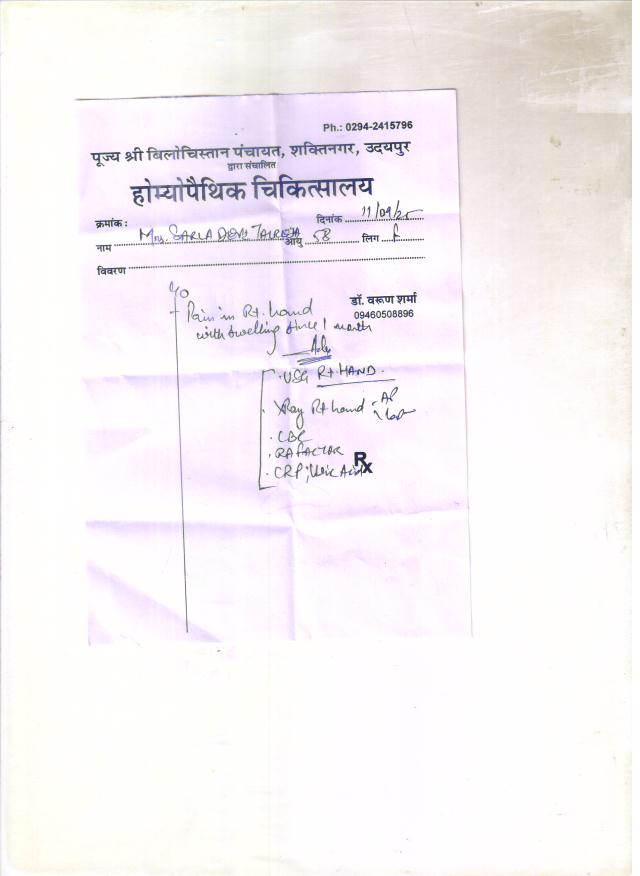 Ph.: 0294-2415796
पूज्य श्री बिलोचिस्तान पंचायत, शक्तिनगर, उदयपुर
द्वारा संचालित
होम्योपैथिक चिकित्सालय
क्रमांक : दिनांक 11/09/25
नाम Mrs. SARLA DEVI TALREJA आयु 58 लिंग F
विवरण
डॉ. वरूण शर्मा
09460508896
C/O
Pain in Rt. hand
with swelling since 1 month
Adv
USG Rt. HAND.
XRay Rt hand - AP
CBC
RA FACTOR
CRP; Uric Acid
Rx